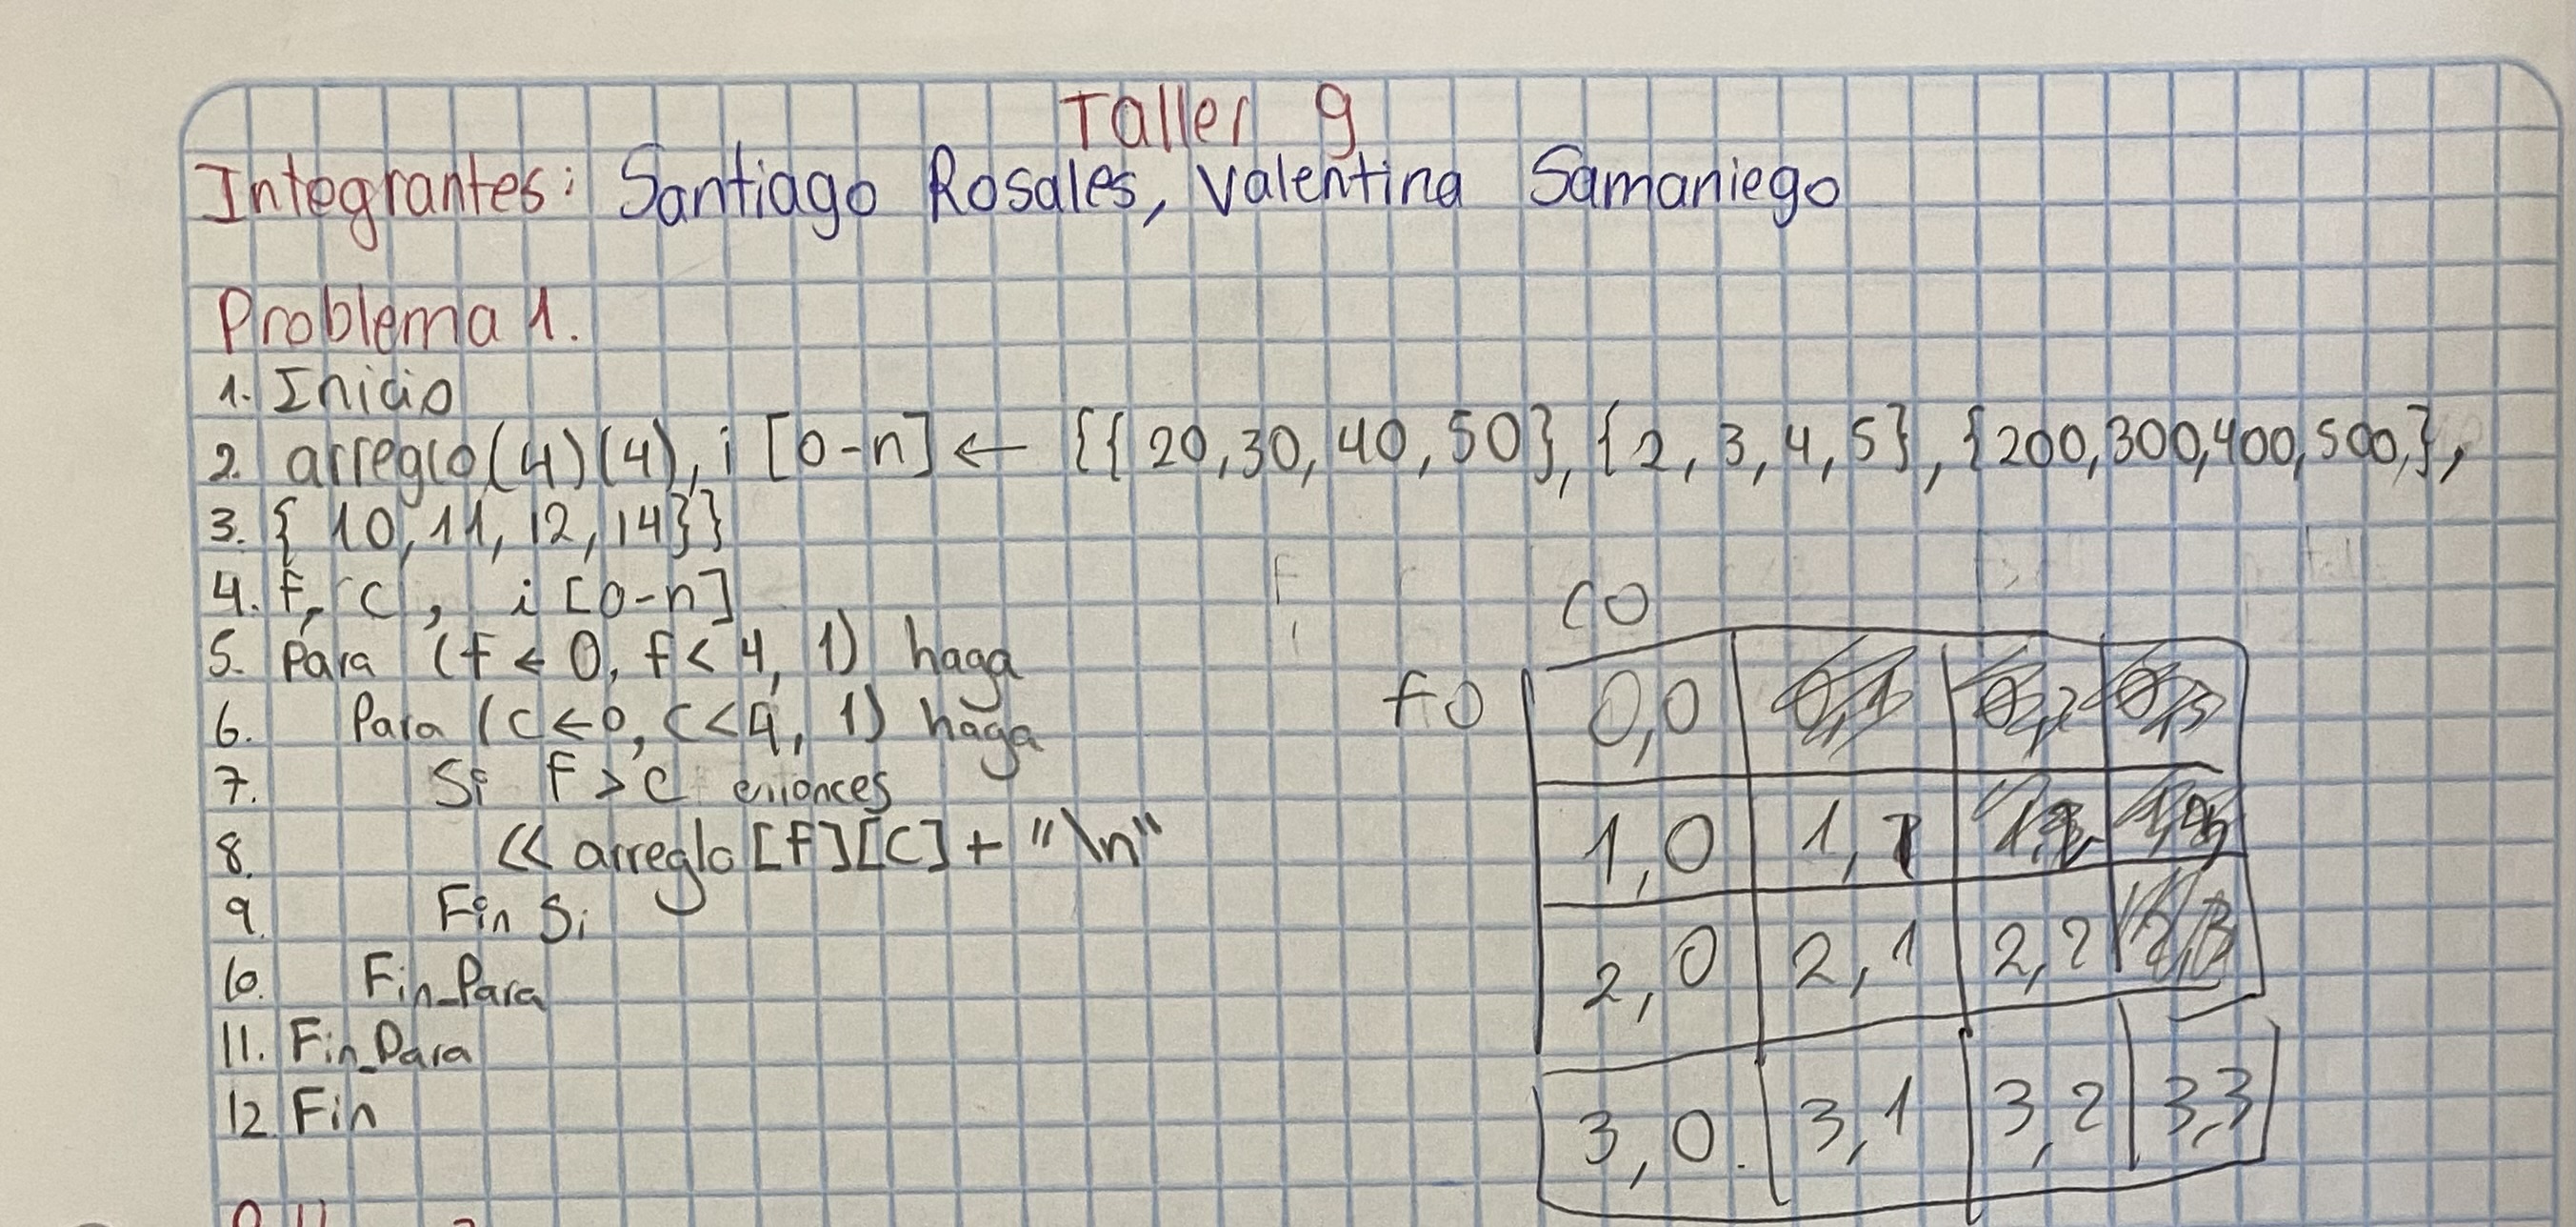 Taller 9
Integrantes: Santiago Rosales, Valentina Samaniego
Problema 1.
1. Inicio
2. arreglo(4)(4), i [0-n] ← {{20,30,40,50},{2,3,4,5},{200,300,400,500,},
3. {10,11,12,14}}
4. f, c, i [0-n]
5. Para (f ← 0, f < 4, 1) haga
6. Para (c ← 0, c < 4, 1) haga
7. Si f > c entonces
8. << arreglo [f][c] + "\n"
9. Fin Si
10. Fin_Para
11. Fin_Para
12. Fin
c0
f0 0,0 0,1 0,2 0,3
1,0 1,1 1,2 1,3
2,0 2,1 2,2 2,3
3,0. 3,1 3,2 3,3